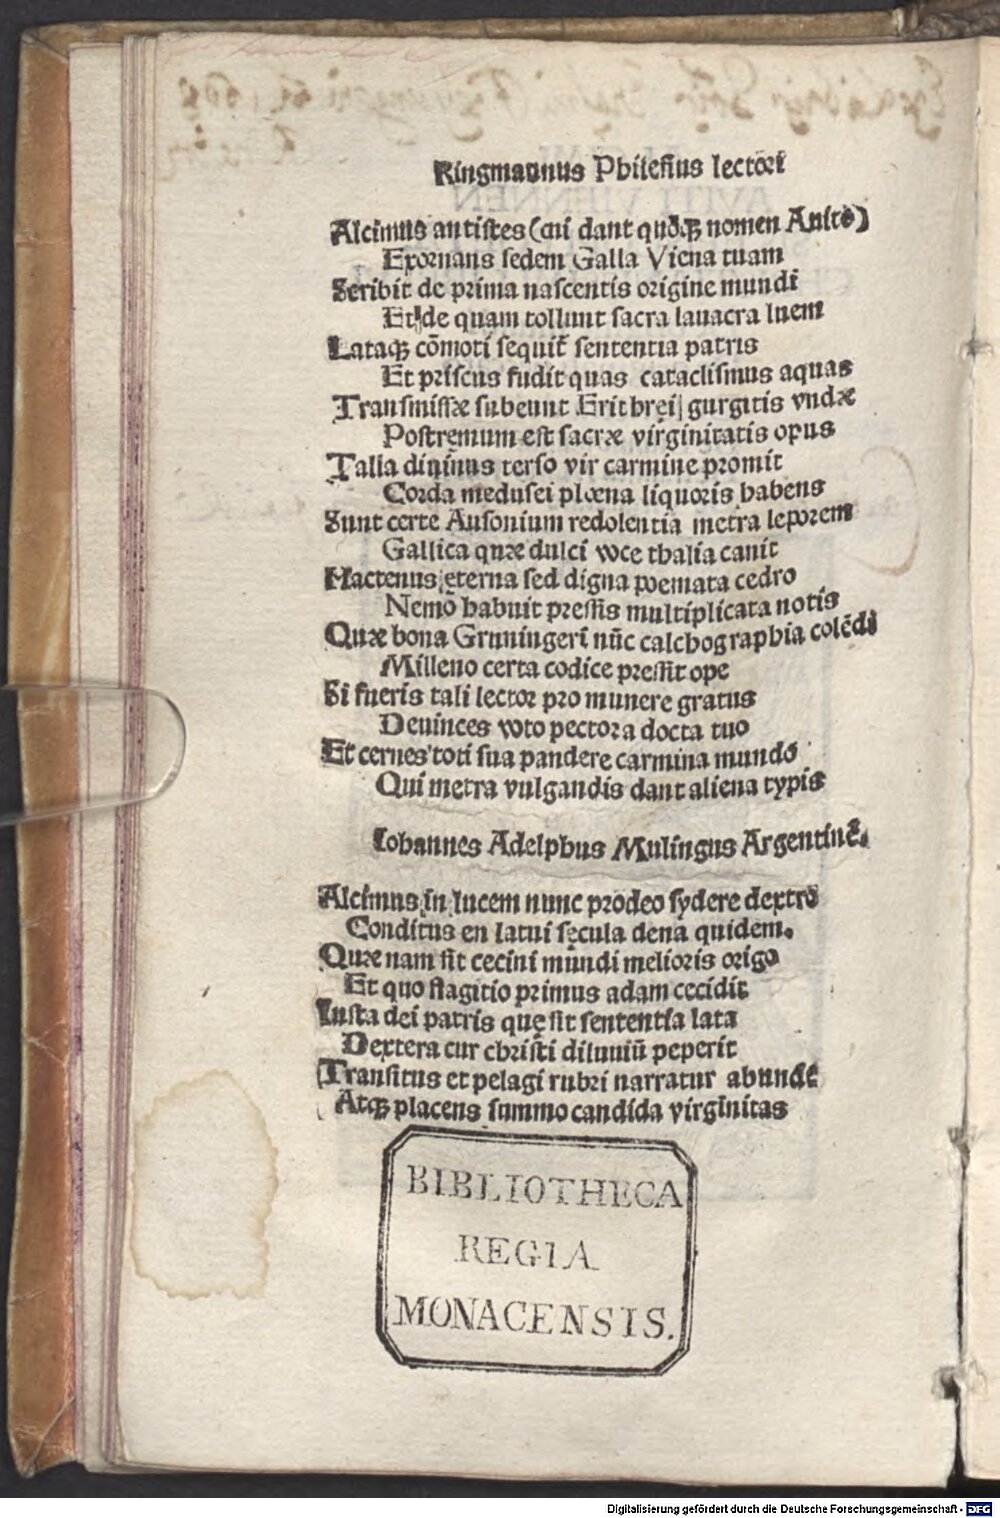 Ringmannus Philesius lectori
Alcimus antistes (cui dant quoꝗ nomen Auito)
Exornans sedem Galla Viena tuam
Scribit de prima nascentis origine mundi
Et de quam tollunt sacra lauacra luem
Lataꝗ cōmoti sequit̃ sententia patris
Et priscus fudit quas cataclismus aquas
Transmissæ subeunt Erithręi gurgitis vndæ
Postremum est sacræ virginitatis opus
Talia diuinus terso vir carmine promit
Corda medusei plœna liquoris habens
Sunt certe Ausonium redolentia metra leporem
Gallica quæ dulci voce thalia canit
Hactenus ęterna sed digna poemata cedro
Nemo habuit pressis multiplicata notis
Quæ bona Gruningeri nūc calchographia colēdi
Milleno certa codice pressit ope
Si fueris tali lector pro munere gratus
Deuinces voto pectora docta tuo
Et cernes toti sua pandere carmina mundo
Qui metra vulgandis dant aliena typis
Iohannes Adelphus Mulingus Argentinẽ.
Alcimus in lucem nunc prodeo sydere dextro
Conditus en latui sęcula dena quidem.
Quæ nam sit cecini mundi melioris origo
Et quo flagitio primus adam cecidit
Iusta dei patris quę sit sententia lata
Dextera cur christi diluuiū peperit
Transitus et pelagi rubri narratur abunde
Atꝗ placens summo candida virginitas
BIBLIOTHECA
REGIA
MONACENSIS.
Digitalisierung gefördert durch die Deutsche Forschungsgemeinschaft - DFG